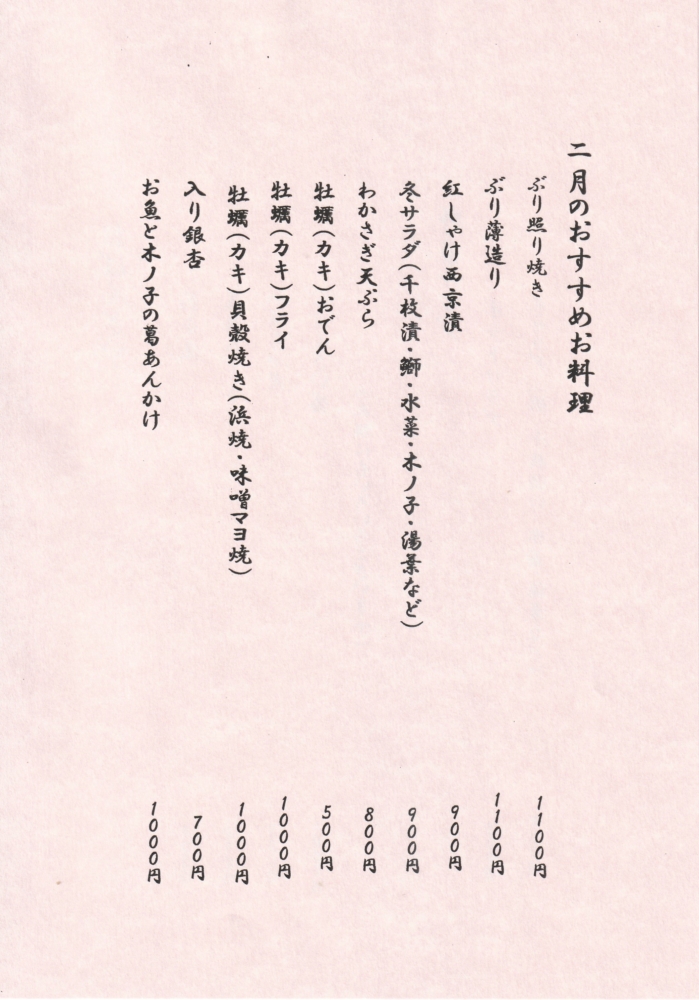 二月のおすすめお料理
ぶり照り焼き 1100円
ぶり薄造り 1100円
紅しゃけ西京漬 900円
冬サラダ(千枚漬・鰤・水菜・木ノ子・湯葉など) 900円
わかさぎ天ぷら 800円
牡蠣(カキ)おでん 500円
牡蠣(カキ)フライ 1000円
牡蠣(カキ)貝殻焼き(浜焼・味噌マヨ焼) 1000円
入り銀杏 700円
お魚と木ノ子の葛あんかけ 1000円